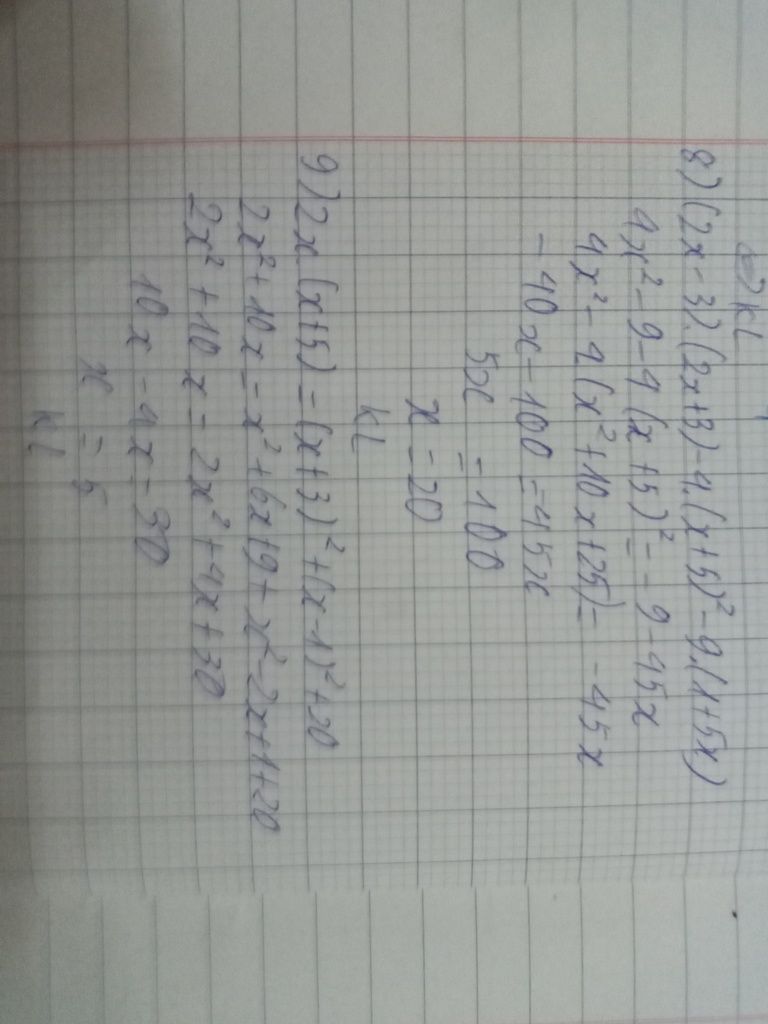 => KL
8) (2x-3).(2x+3)-4.(x+5)² - 9.(1+5x)
4x² - 9 - 4 (x+5)² = - 9 - 45x
4x² - 4 (x² + 10x + 25) = - 45x
- 40x - 100 = 45x
5x = 100
x = 20
KL
9) 2x (x+5) = (x+3)² + (x-1)² + 20
2x² + 10x = x² + 6x + 9 + x² - 2x + 1 + 20
2x² + 10x = 2x² + 4x + 30
10x - 4x = 30
x = 5
KL